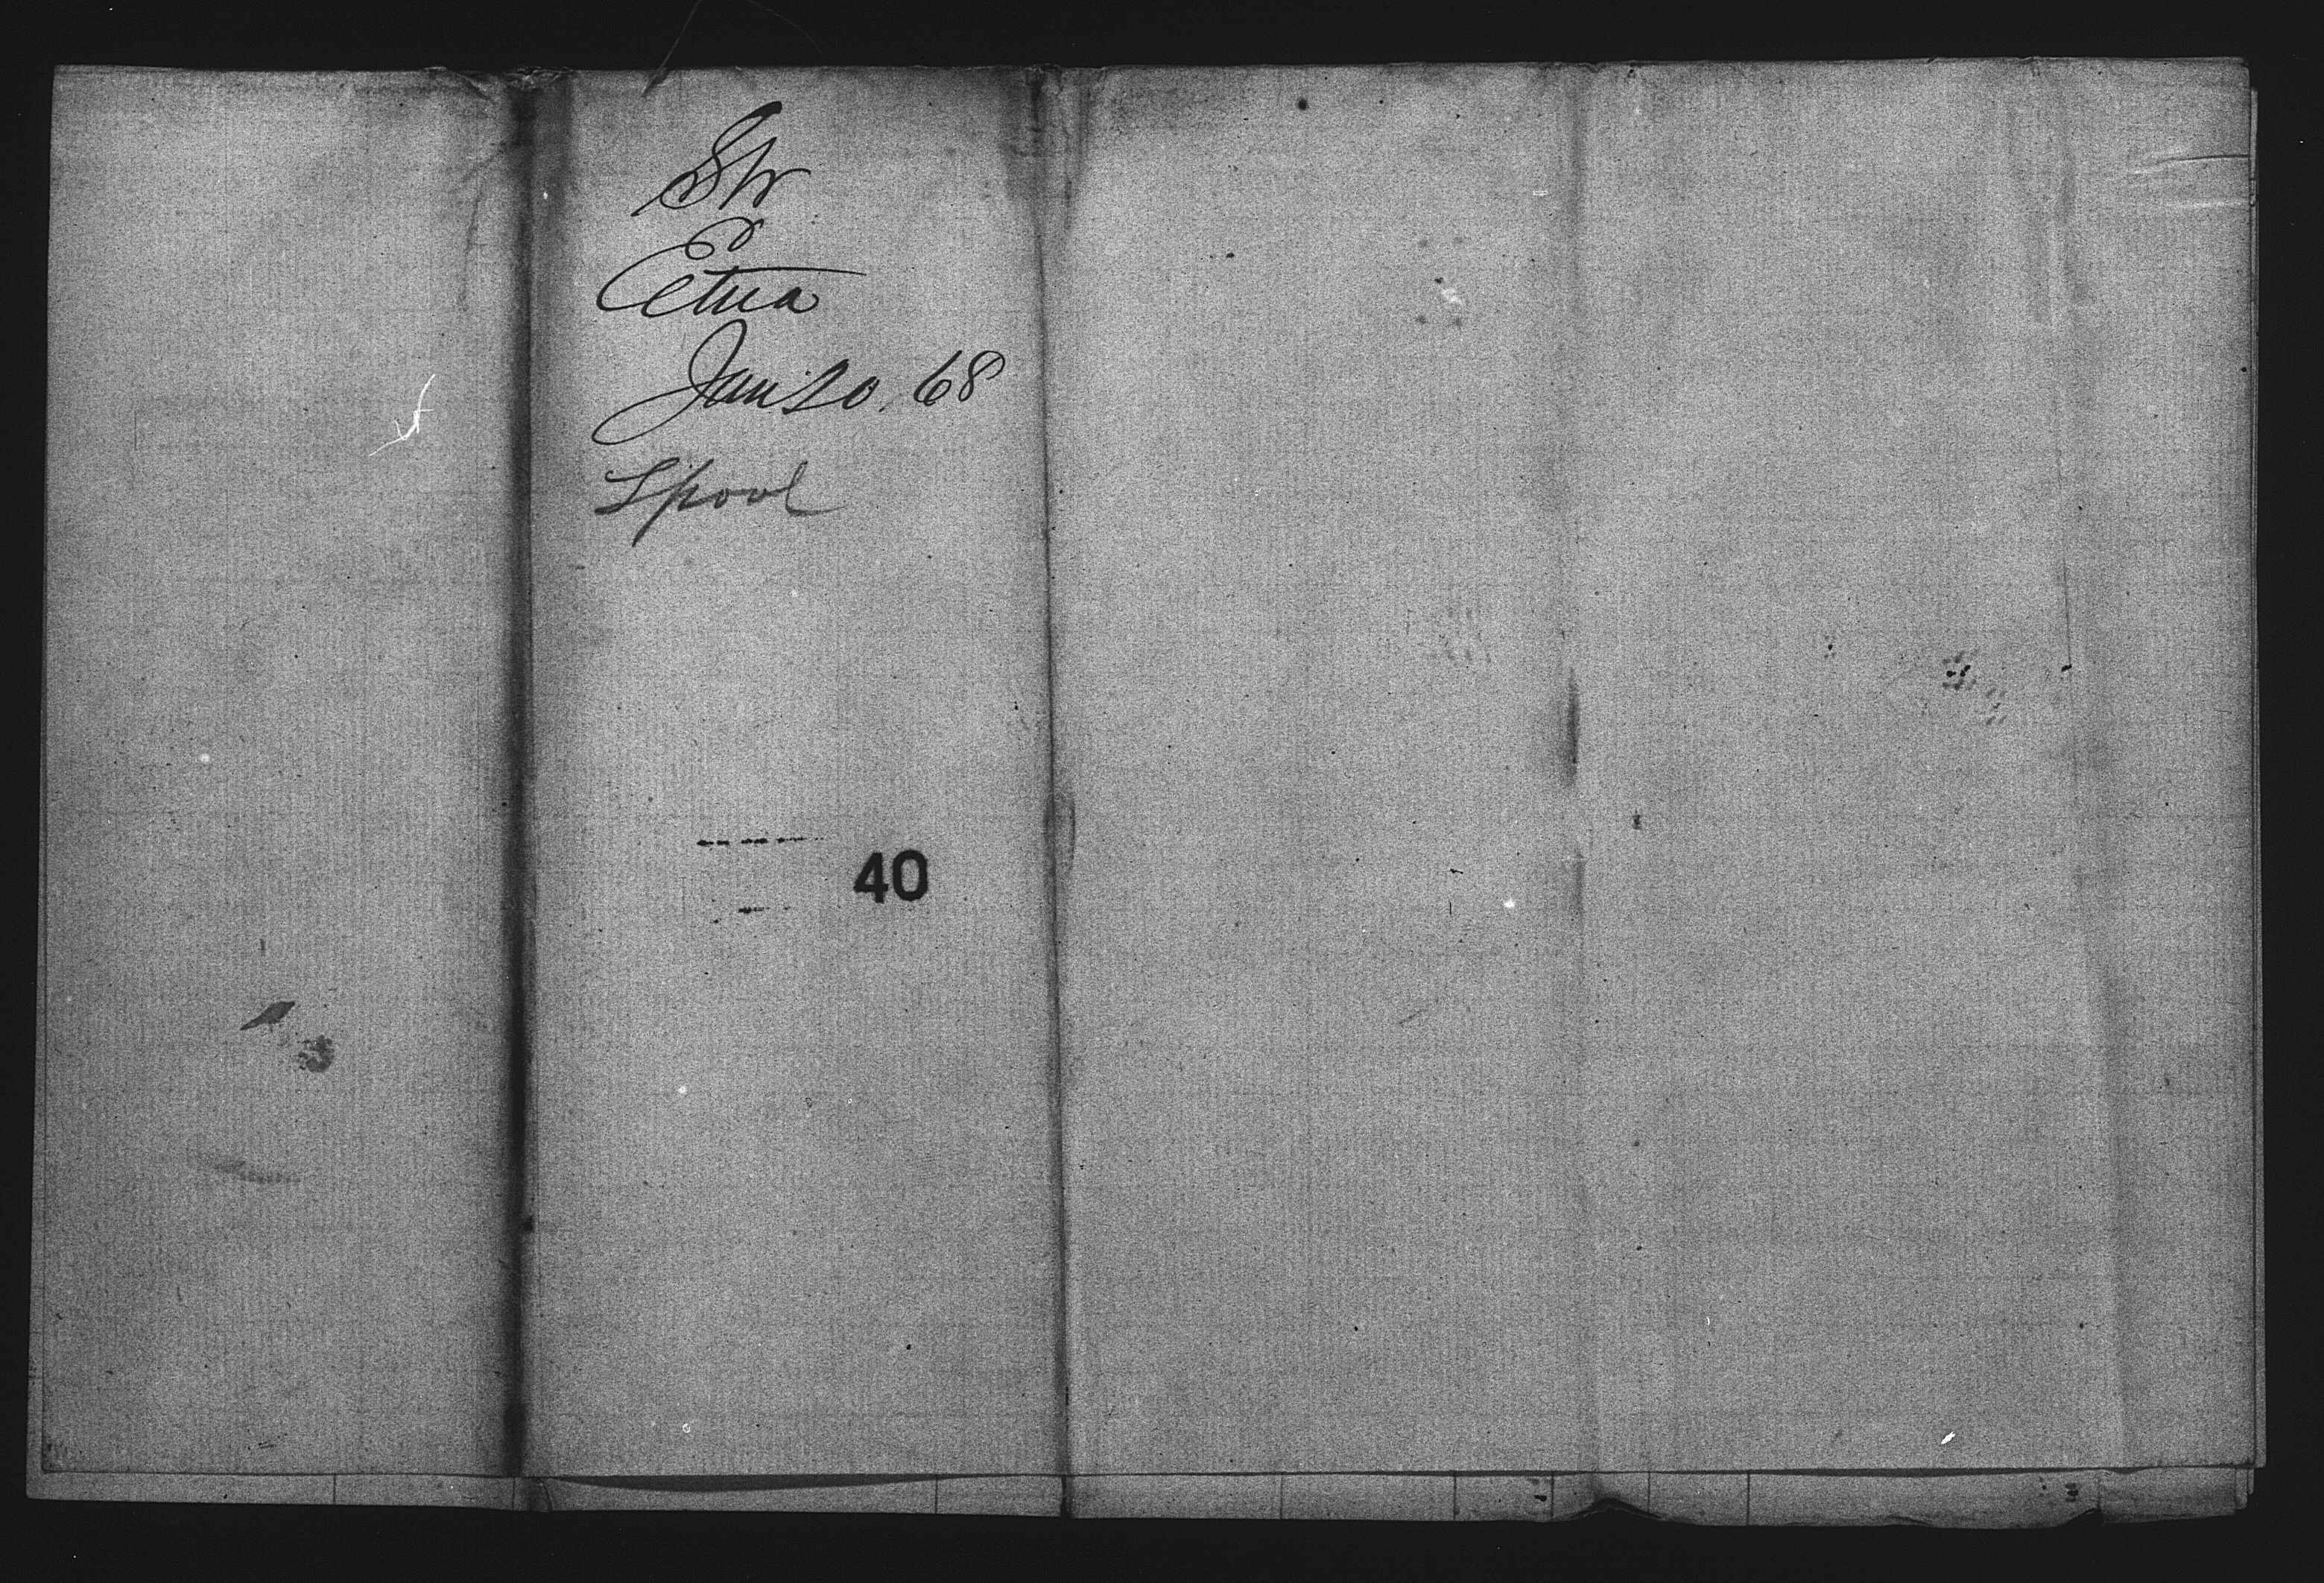 Str
Etna
Jan 20. 68
Lpool
40